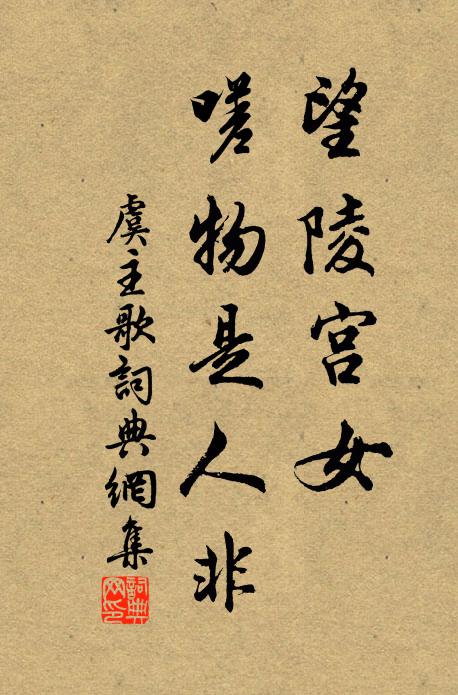 望陵宫女
嗟物是人非
虞主歌詞典網集
詞典
网印